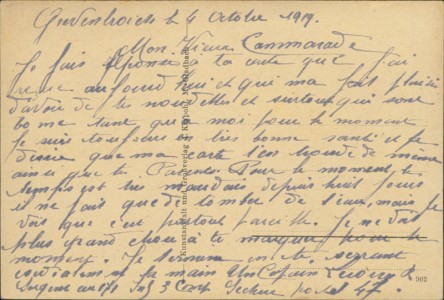 le 4 Octobre 1919.
Mon Vieux Cammarade
Je fais réponse à ta carte que j'ai
reçue aujourd'hui et qui ma fait plaisir
d'avoir de tes nouvelles et surtout qui sont
bonne tant qu'a moi pour le moment
Je suis toujours en très bonne santé et je
désire que ma carte t'en trouve de même
ainsi que tes Parents Pour le moment, le
temps est très mauvais depuis huit jours
et il ne fait que de tomber de l'eau, mais je
vois que c'est partout pareille. Je ne vois
plus grand chose à te marquer pour le
moment. Je termine en te serrant
cordialement la main Un Copain
Sergent au 171 Inf 3 Secteur postal 47.
Kunstanstalt und Verlag
902